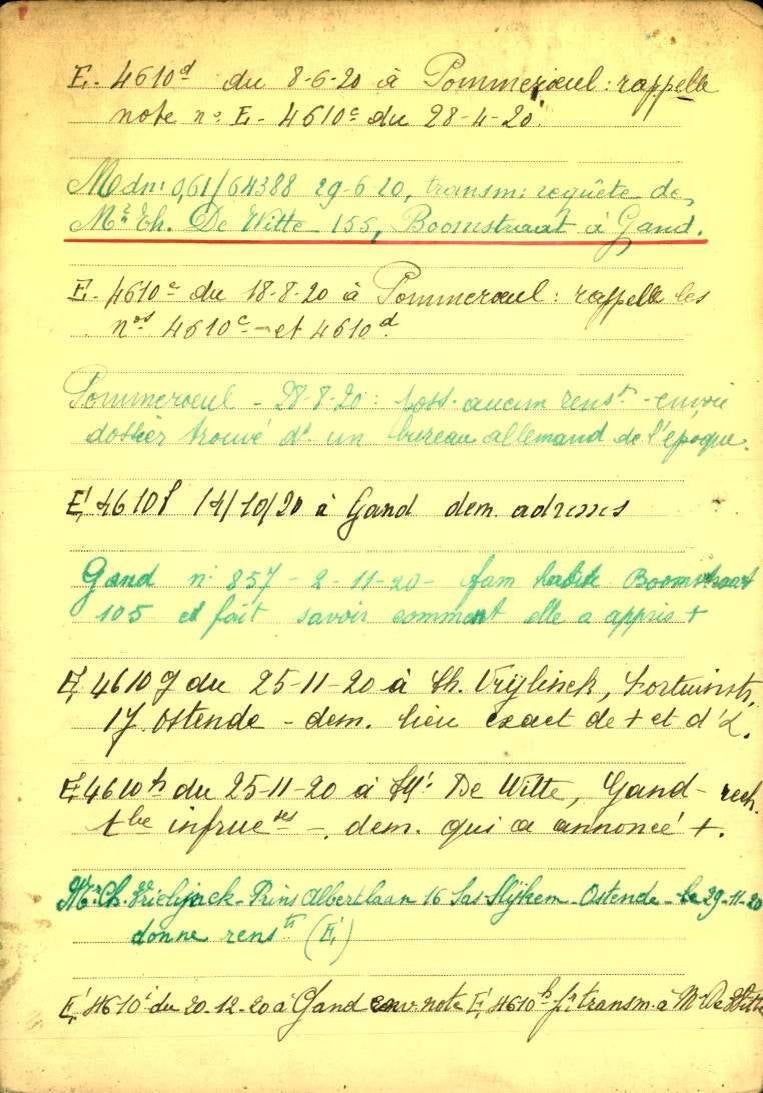 E. 4610d du 8-6-20 à Pommerœul : rappelle
note n° E. 4610c du 28-4-20.
Mdn: 0,61/64388 29-6-20, transm: requête de
Mr Th. De Witte 155, Boomstraat à Gand.
E. 4610e du 18-8-20 à Pommerœul : rappelle les
nos 4610c et 4610d.
Pommerœul - 28-8-20 : poss. aucun renst - envoie
dossier trouvé ds un bureau allemand de l'époque.
E! 4610f 14/10/20 à Gand dem. adresses
Gand n° 857 - 2-11-20 - fam habite Boomstraat
105 et fait savoir comment elle a appris +
E! 4610g du 25-11-20 à Ch. Vrylinck, Fortuinstr,
17 Ostende - dem. lieu exact de + et d'I.
E! 4610h du 25-11-20 à Mr De Witte, Gand - rech.
tbe infrueses -. dem. qui a annoncé +.
Mr Ch. Vrielynck - Prins Albertlaan 16 Sas Slijkem - Ostende - le 29-11-20
donne rensts (E!)
E! 4610i du 20-12-20 à Gand env. note E! 4610h pr transm. à Mr De Witte